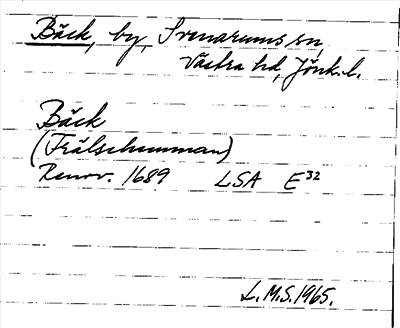 Bäck, by, Svenarums sn,
Västra hd, Jönk. l.
Bäck
(Frälsehemman)
Renov. 1689 LSA E³²
L.M.S. 1965.